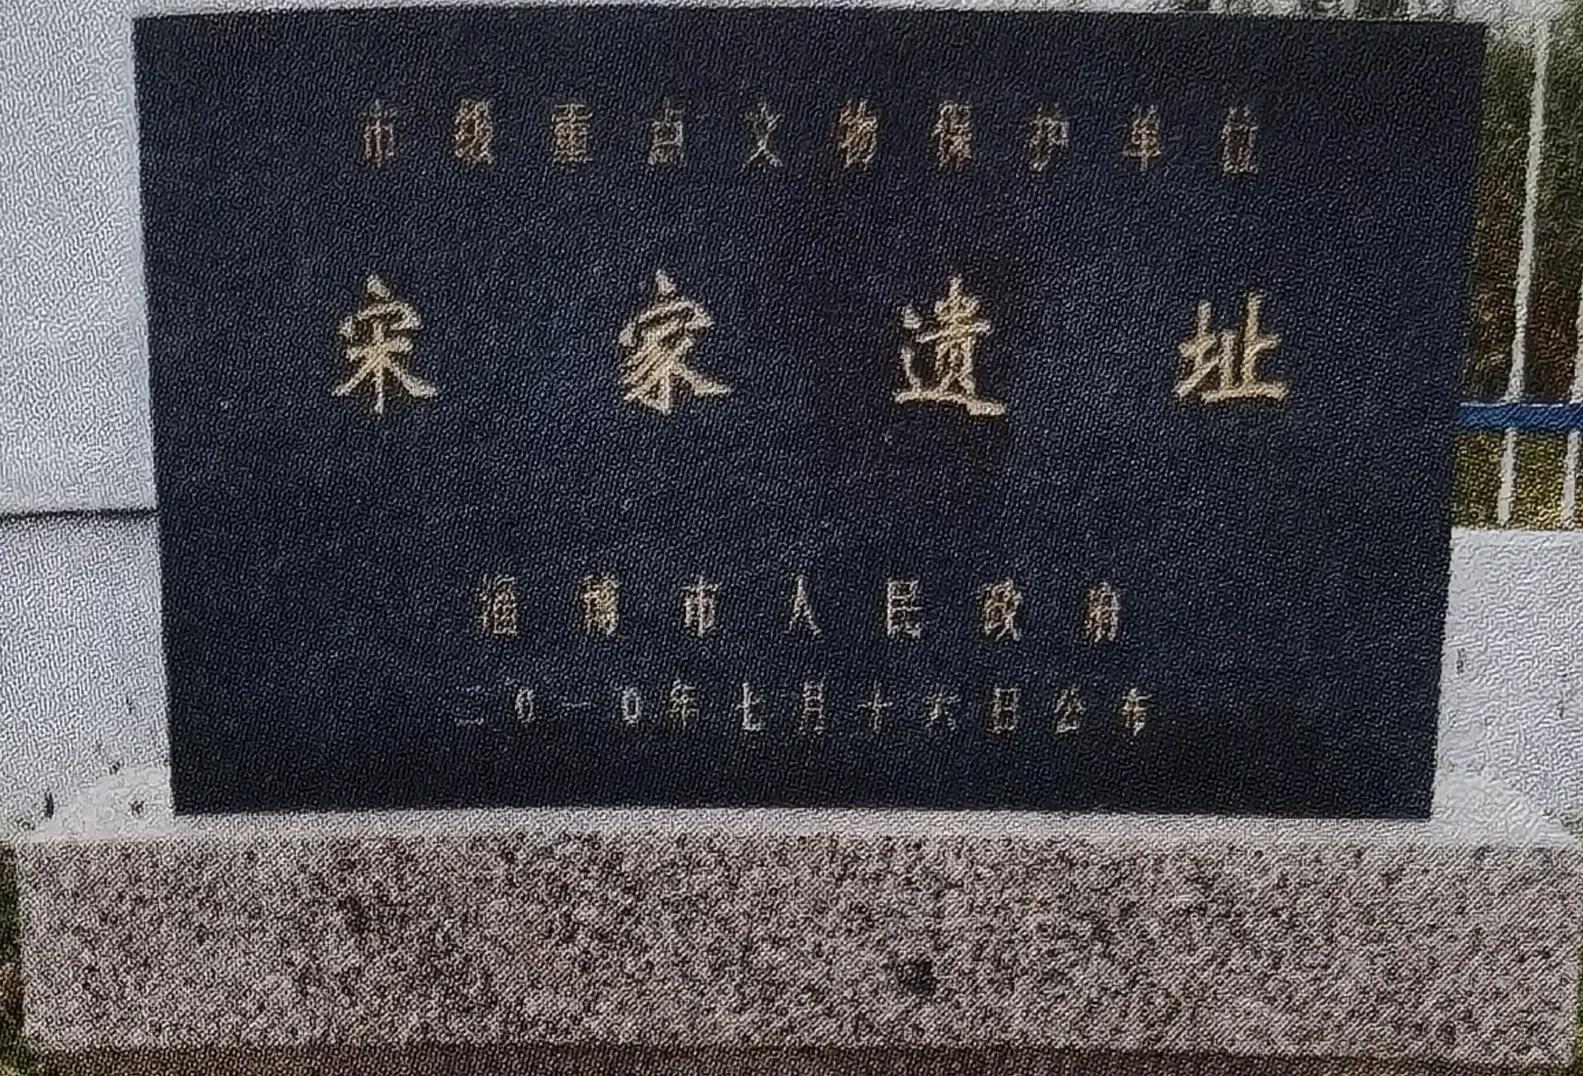 市级重点文物保护单位
宋家遗址
淄博市人民政府
二0一0年七月十六日公布